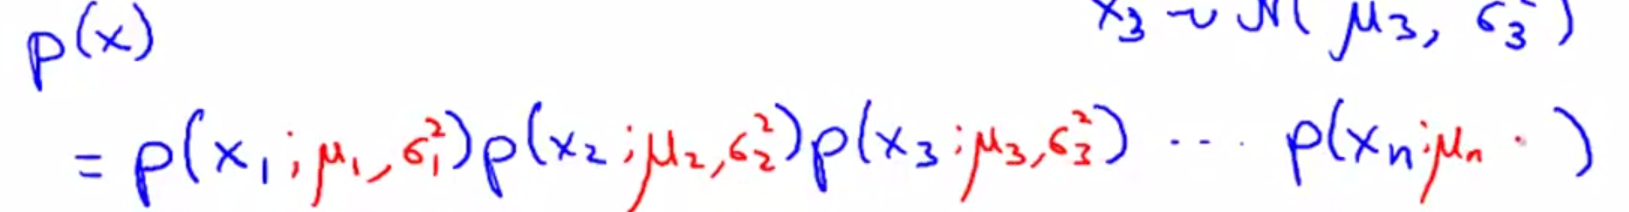 p(x)
x₃ ~ N(μ₃, σ₃²)
= p(x₁; μ₁, σ₁²) p(x₂; μ₂, σ₂²) p(x₃; μ₃, σ₃²) ··· p(xₙ; μₙ )